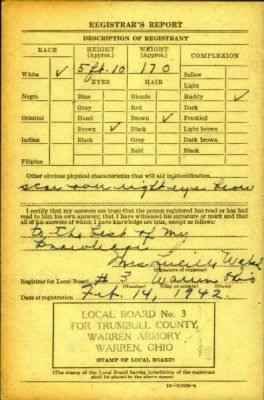 REGISTRAR'S REPORT
DESCRIPTION OF REGISTRANT
RACE HEIGHT (Approx.) WEIGHT (Approx.) COMPLEXION
White ✓ 5 ft. 10 170 Sallow
EYES HAIR Light
Negro Blue Blonde Ruddy ✓
Gray Red Dark
Oriental Hazel Brown ✓ Freckled
Brown ✓ Black Light brown
Indian Black Gray Dark brown
Bald Black
Filipino
Other obvious physical characteristics that will aid in identification
scar over right eye
I certify that my answers are true; that the person registered has read or has had read to him his own answers; that I have witnessed his signature or mark and that all of his answers of which I have knowledge are true, except as follows:
to the best of my
knowledge
Mrs Lucille
(Signature of registrar)
Registrar for Local Board # 3 Warren Ohio
(Number) (City or County) (State)
Date of registration Feb. 14, 1942.
LOCAL BOARD No. 3
FOR TRUMBULL COUNTY,
WARREN ARMORY
WARREN, OHIO
(STAMP OF LOCAL BOARD)
(The stamp of the Local Board having jurisdiction of the registrant shall be placed in the above space)